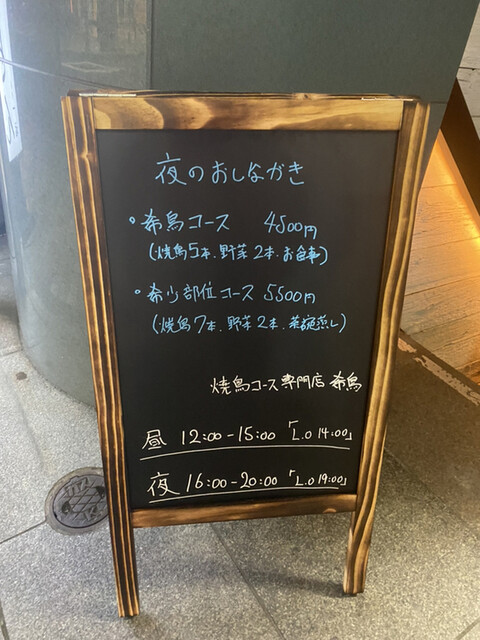 夜のおしながき
・希鳥コース 4500円
(焼鳥5本、野菜2本、お食事)
・希少部位コース 5500円
(焼鳥7本、野菜2本、茶碗蒸し)
焼鳥コース専門店 希鳥
昼 12:00-15:00 「L.O 14:00」
夜 16:00-20:00 「L.O 19:00」